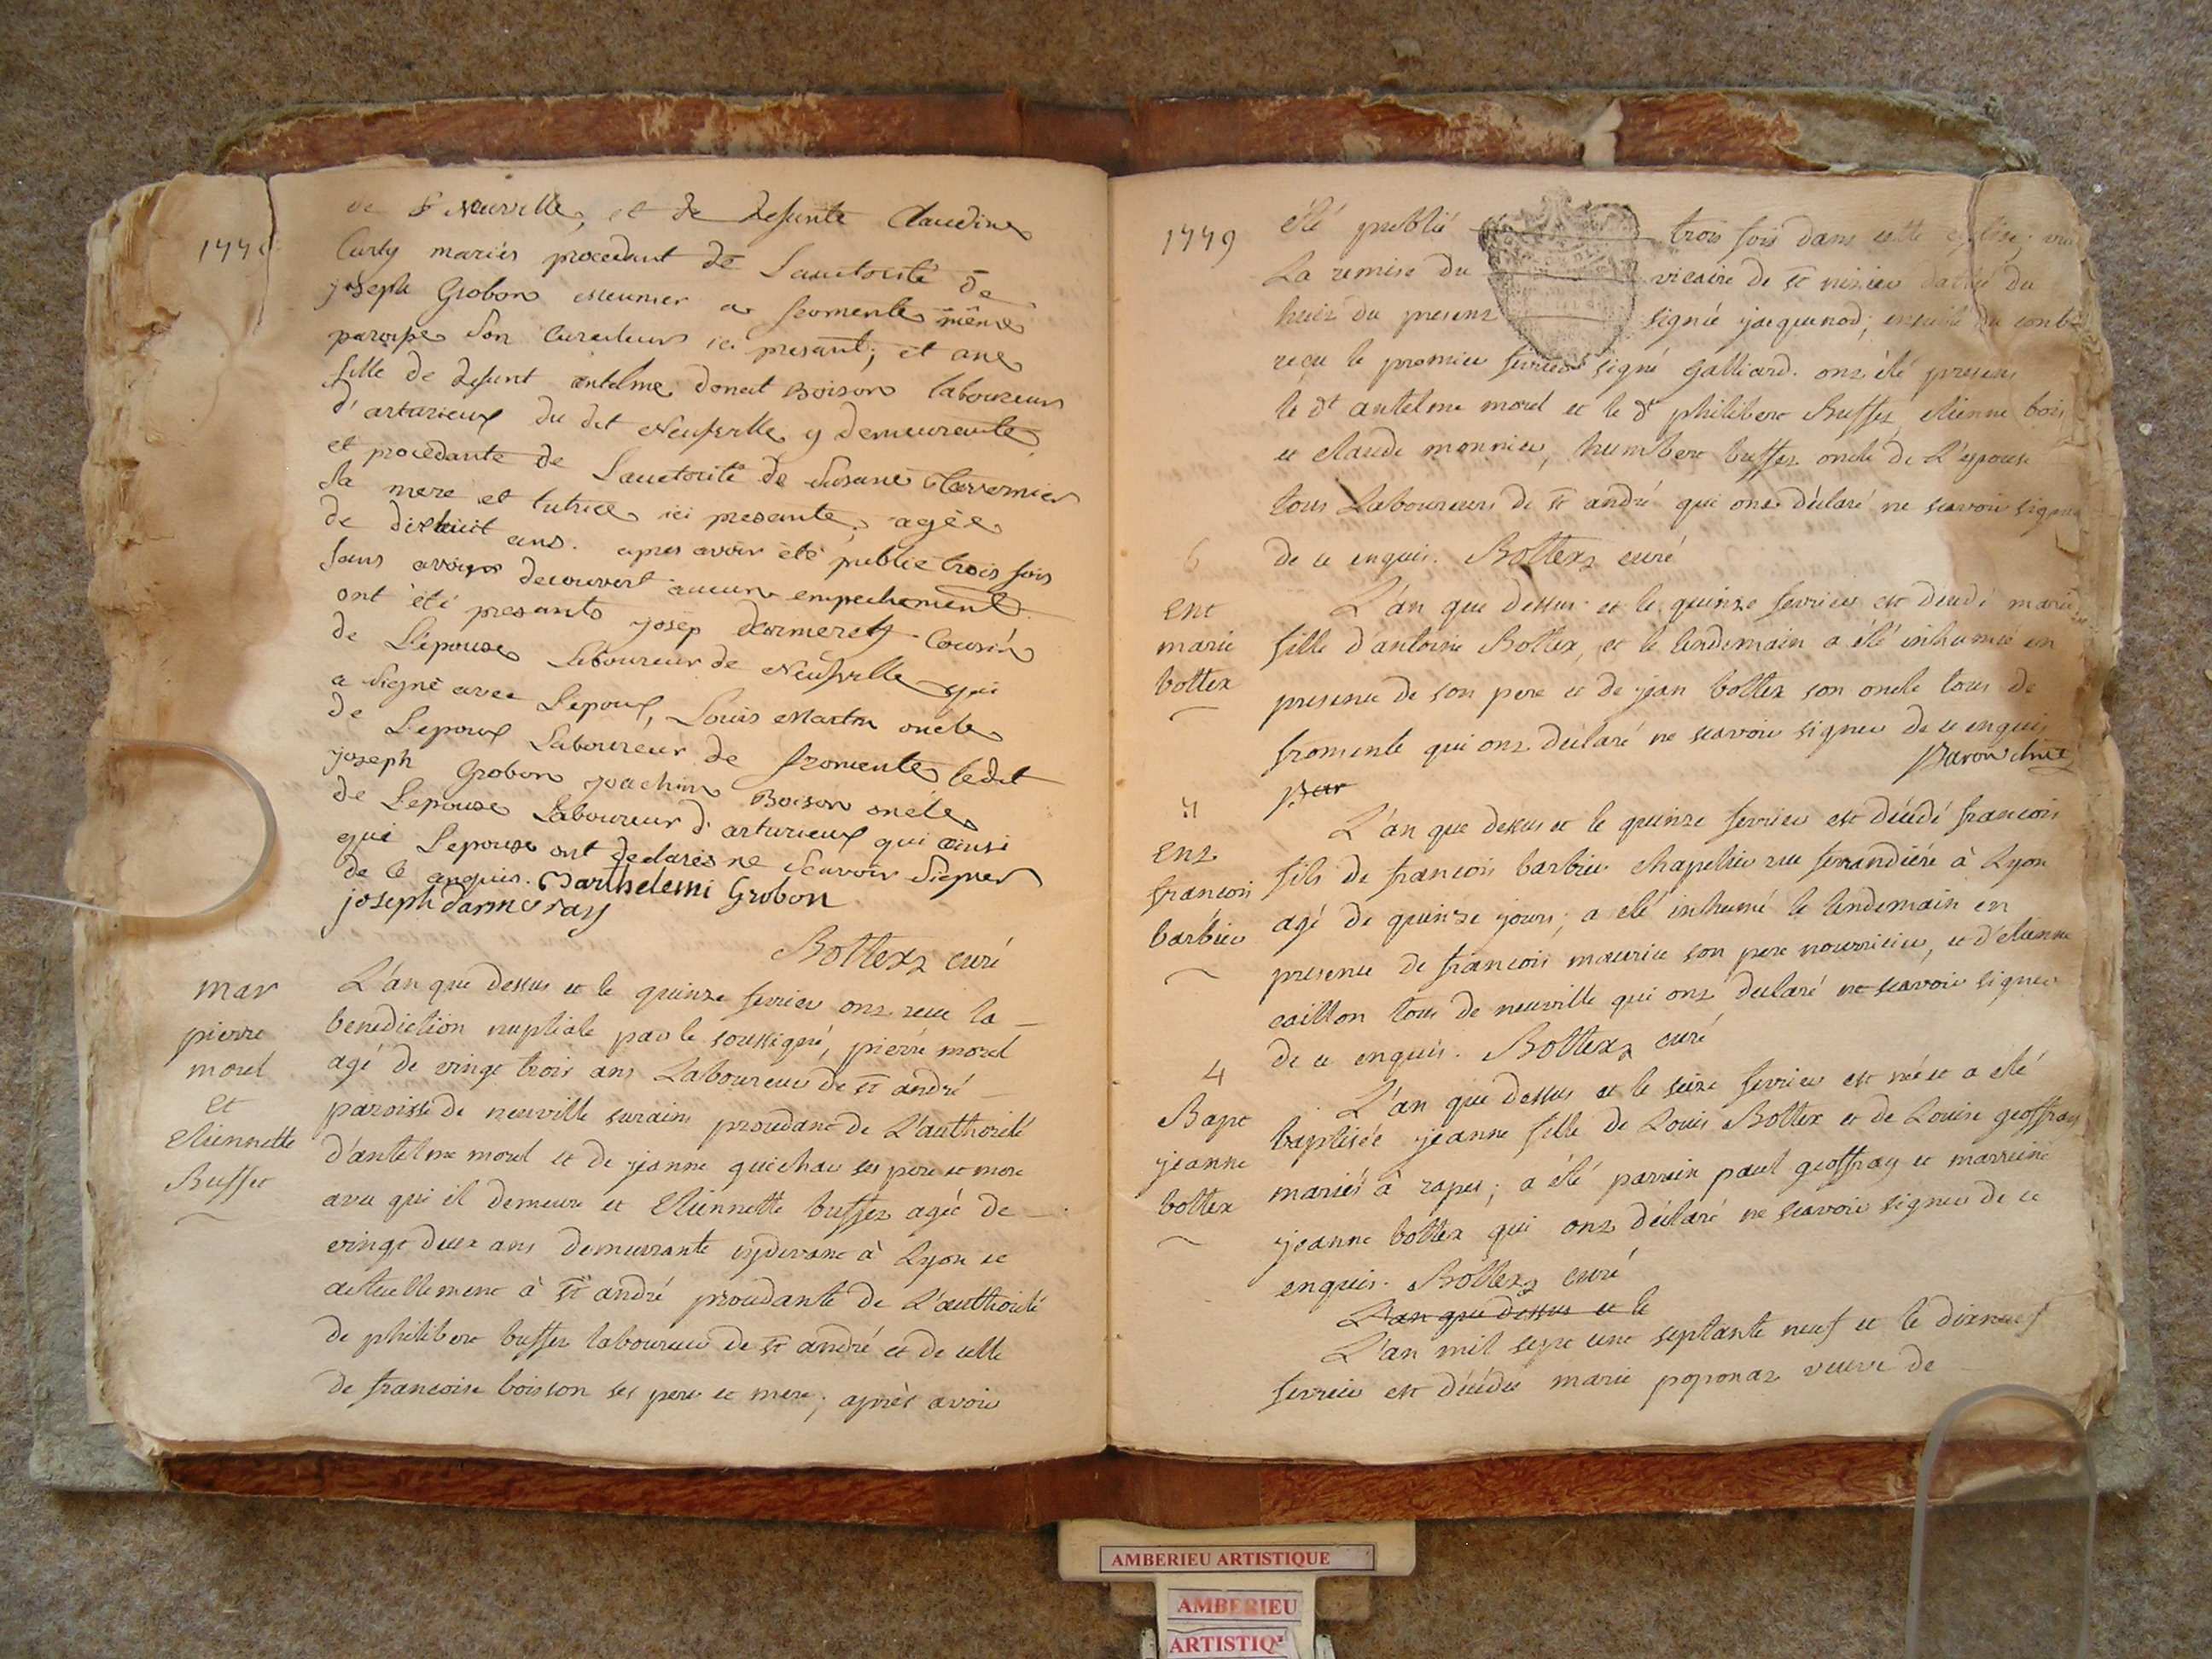 1779
de Neuville, et de defunte Claudine
Curty mariés procedant de Lauctorité de
joseph Grobon meunier a fromente même
paroisse son Curateur ici present; et ane
fille de defunt antelme donat Boison laboureur
d'arturieux du dit Neufville y demeurante
et procedante de Lauctorité de Susane Tavernier
sa mere et tutrice ici presante, agée
de dixhuit ans. apres avoir été publié trois fois
sans avoir decouvert aucun empechement
ont été presants josep darmerey Cousin
de L'épouse Laboureur de Neufville qui
a signé avec L'epoux, Louis Martin oncle
de L'epoux Laboureur de fromente ledit
joseph Grobon joachim Boison oncle
de L'epouse Laboureur d'arturieux qui ainsi
que L'epouse ont declarés ne scavoir signer
de ce enquis. Barthelemi Grobon
joseph darmeray
Bottexz curé
mar
pierre
morel
et
Etiennette
Buffet
L'an que dessus et le quinze fevrier ont recu la
benediction nuptiale par le soussigné, pierre morel
agé de vingt trois ans Laboureur de st andré
paroisse de neuville surains procedant de L'authorité
d'antelme morel et de jeanne guichar ses pere et mere
avec qui il demeure et Etiennette buffet agée de
vingt deux ans demeurante cydevant à Lyon et
actuellement à st andré procedante de L'authorité
de philibert buffet laboureur de st andré et de celle
de francoise boisson ses pere et mere; après avoir
1779
été publié trois fois dans cette église; vu
La remise du vicaire de st nizier datée du
huit du present signée jacquenod; ensuite du controle
reçu le premier fevrier signé Galliard. ont été presens
le dt antelme morel et le dt philibert Buffet, etienne bois
et claude monnier, humbert buffet oncle de L'epouse
tous Laboureurs de st andré qui ont déclaré ne scavoir signer
de ce enquis. Bottexz curé
6
Ent
marie
bottex
L'an que dessus et le quinze fevrier est décédé marie
fille d'antoine Bottex, et le lendemain a été inhumée en
presence de son pere et de jean bottex son oncle tous de
fromente qui ont déclaré ne scavoir signer de ce enquis
par
Ent
francois
barbier
L'an que dessus et le quinze fevrier est décédé francois
fils de francois barbier chapelier rue ferrandiére à Lyon
agé de quinze jours, a été inhumé le lendemain en
presence de francois maurice son pere nourricier, et d'etienne
caillon tous de neuville qui ont declaré ne scavoir signer
de ce enquis. Bottexz curé
4
Bapt
jeanne
bottex
L'an que dessus et le seize fevrier est née et a été
baptisée jeanne fille de Louis Bottex et de Louise geoffray
mariés à rapes; a été parrein paul geoffray et marreine
jeanne bottex qui ont déclaré ne scavoir signer de ce
enquis. Bottexz curé
L'an que dessus et le
L'an mil sept cent septante neuf et le dixneuf
fevrier est décédée marie poponaz veuve de
AMBERIEU ARTISTIQUE
AMBERIEU
ARTISTIQ